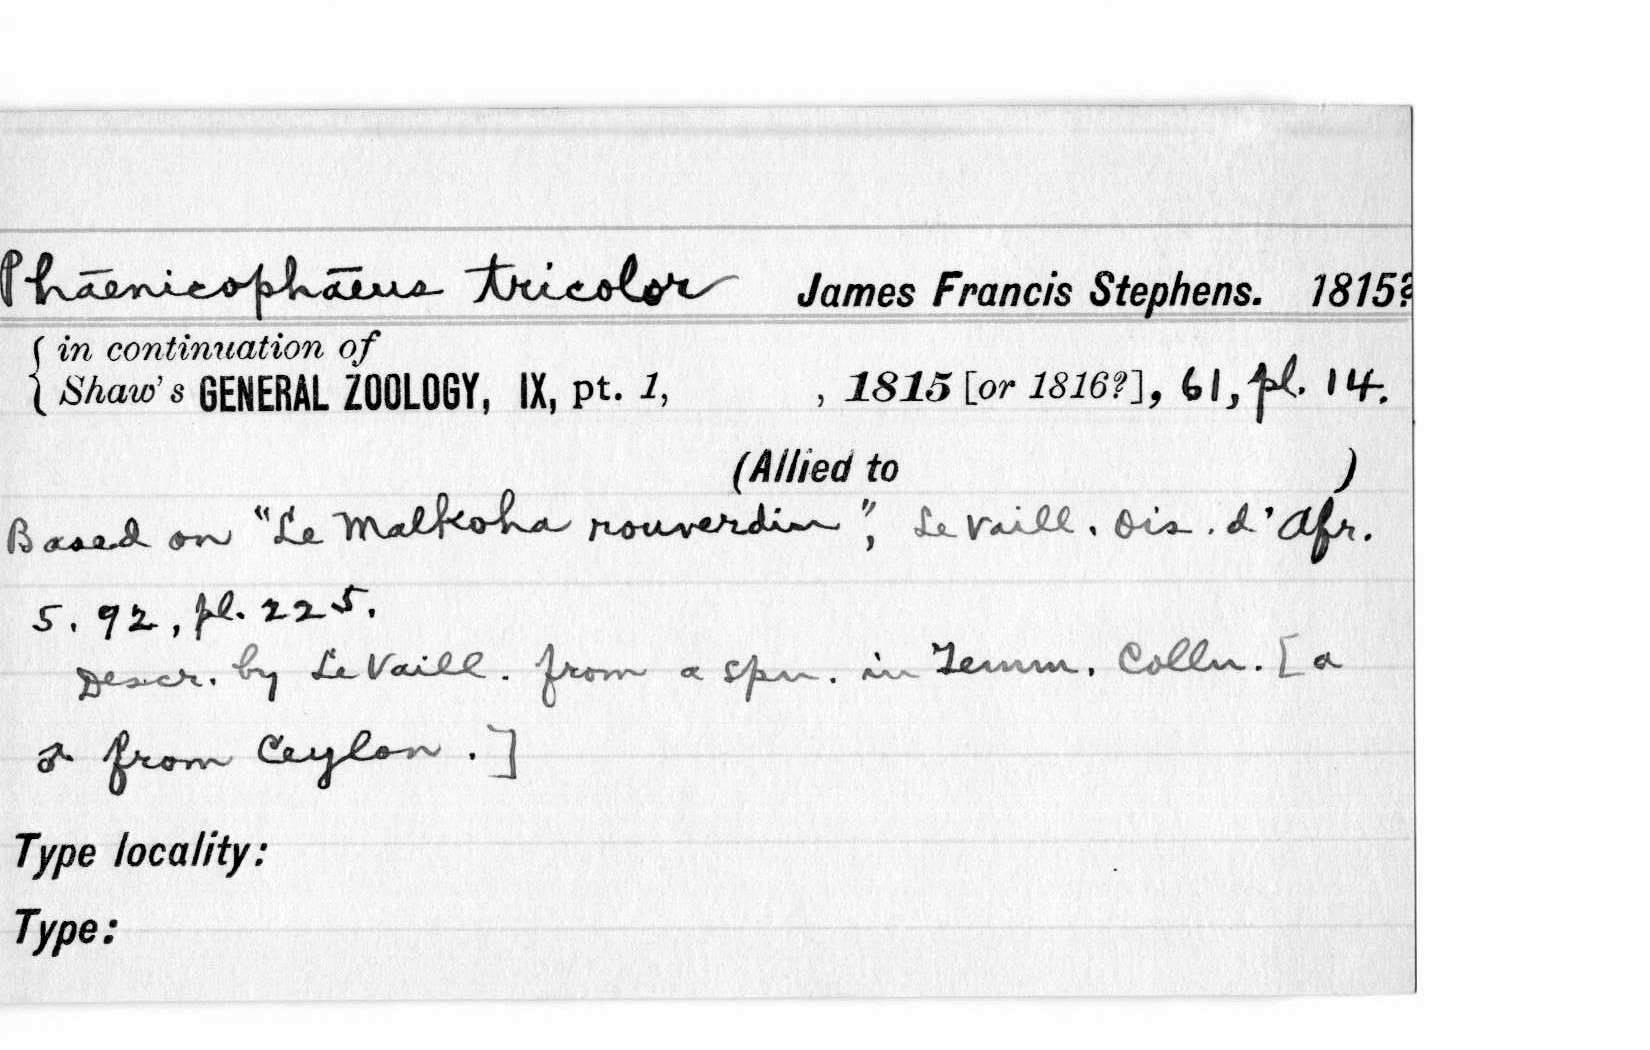 Phāenicophāeus tricolor James Francis Stephens. 1815?
{ in continuation of
Shaw's GENERAL ZOOLOGY, IX, pt. 1, , 1815 [or 1816?], 61, pl. 14.
(Allied to )
Based on "Le Malkoha rouverdin", Le Vaill. Ois. d'Afr.
5. 92, pl. 225.
Descr. by Le Vaill. from a spn. in Temm. Colln. [a
from Ceylon.]
Type locality:
Type: